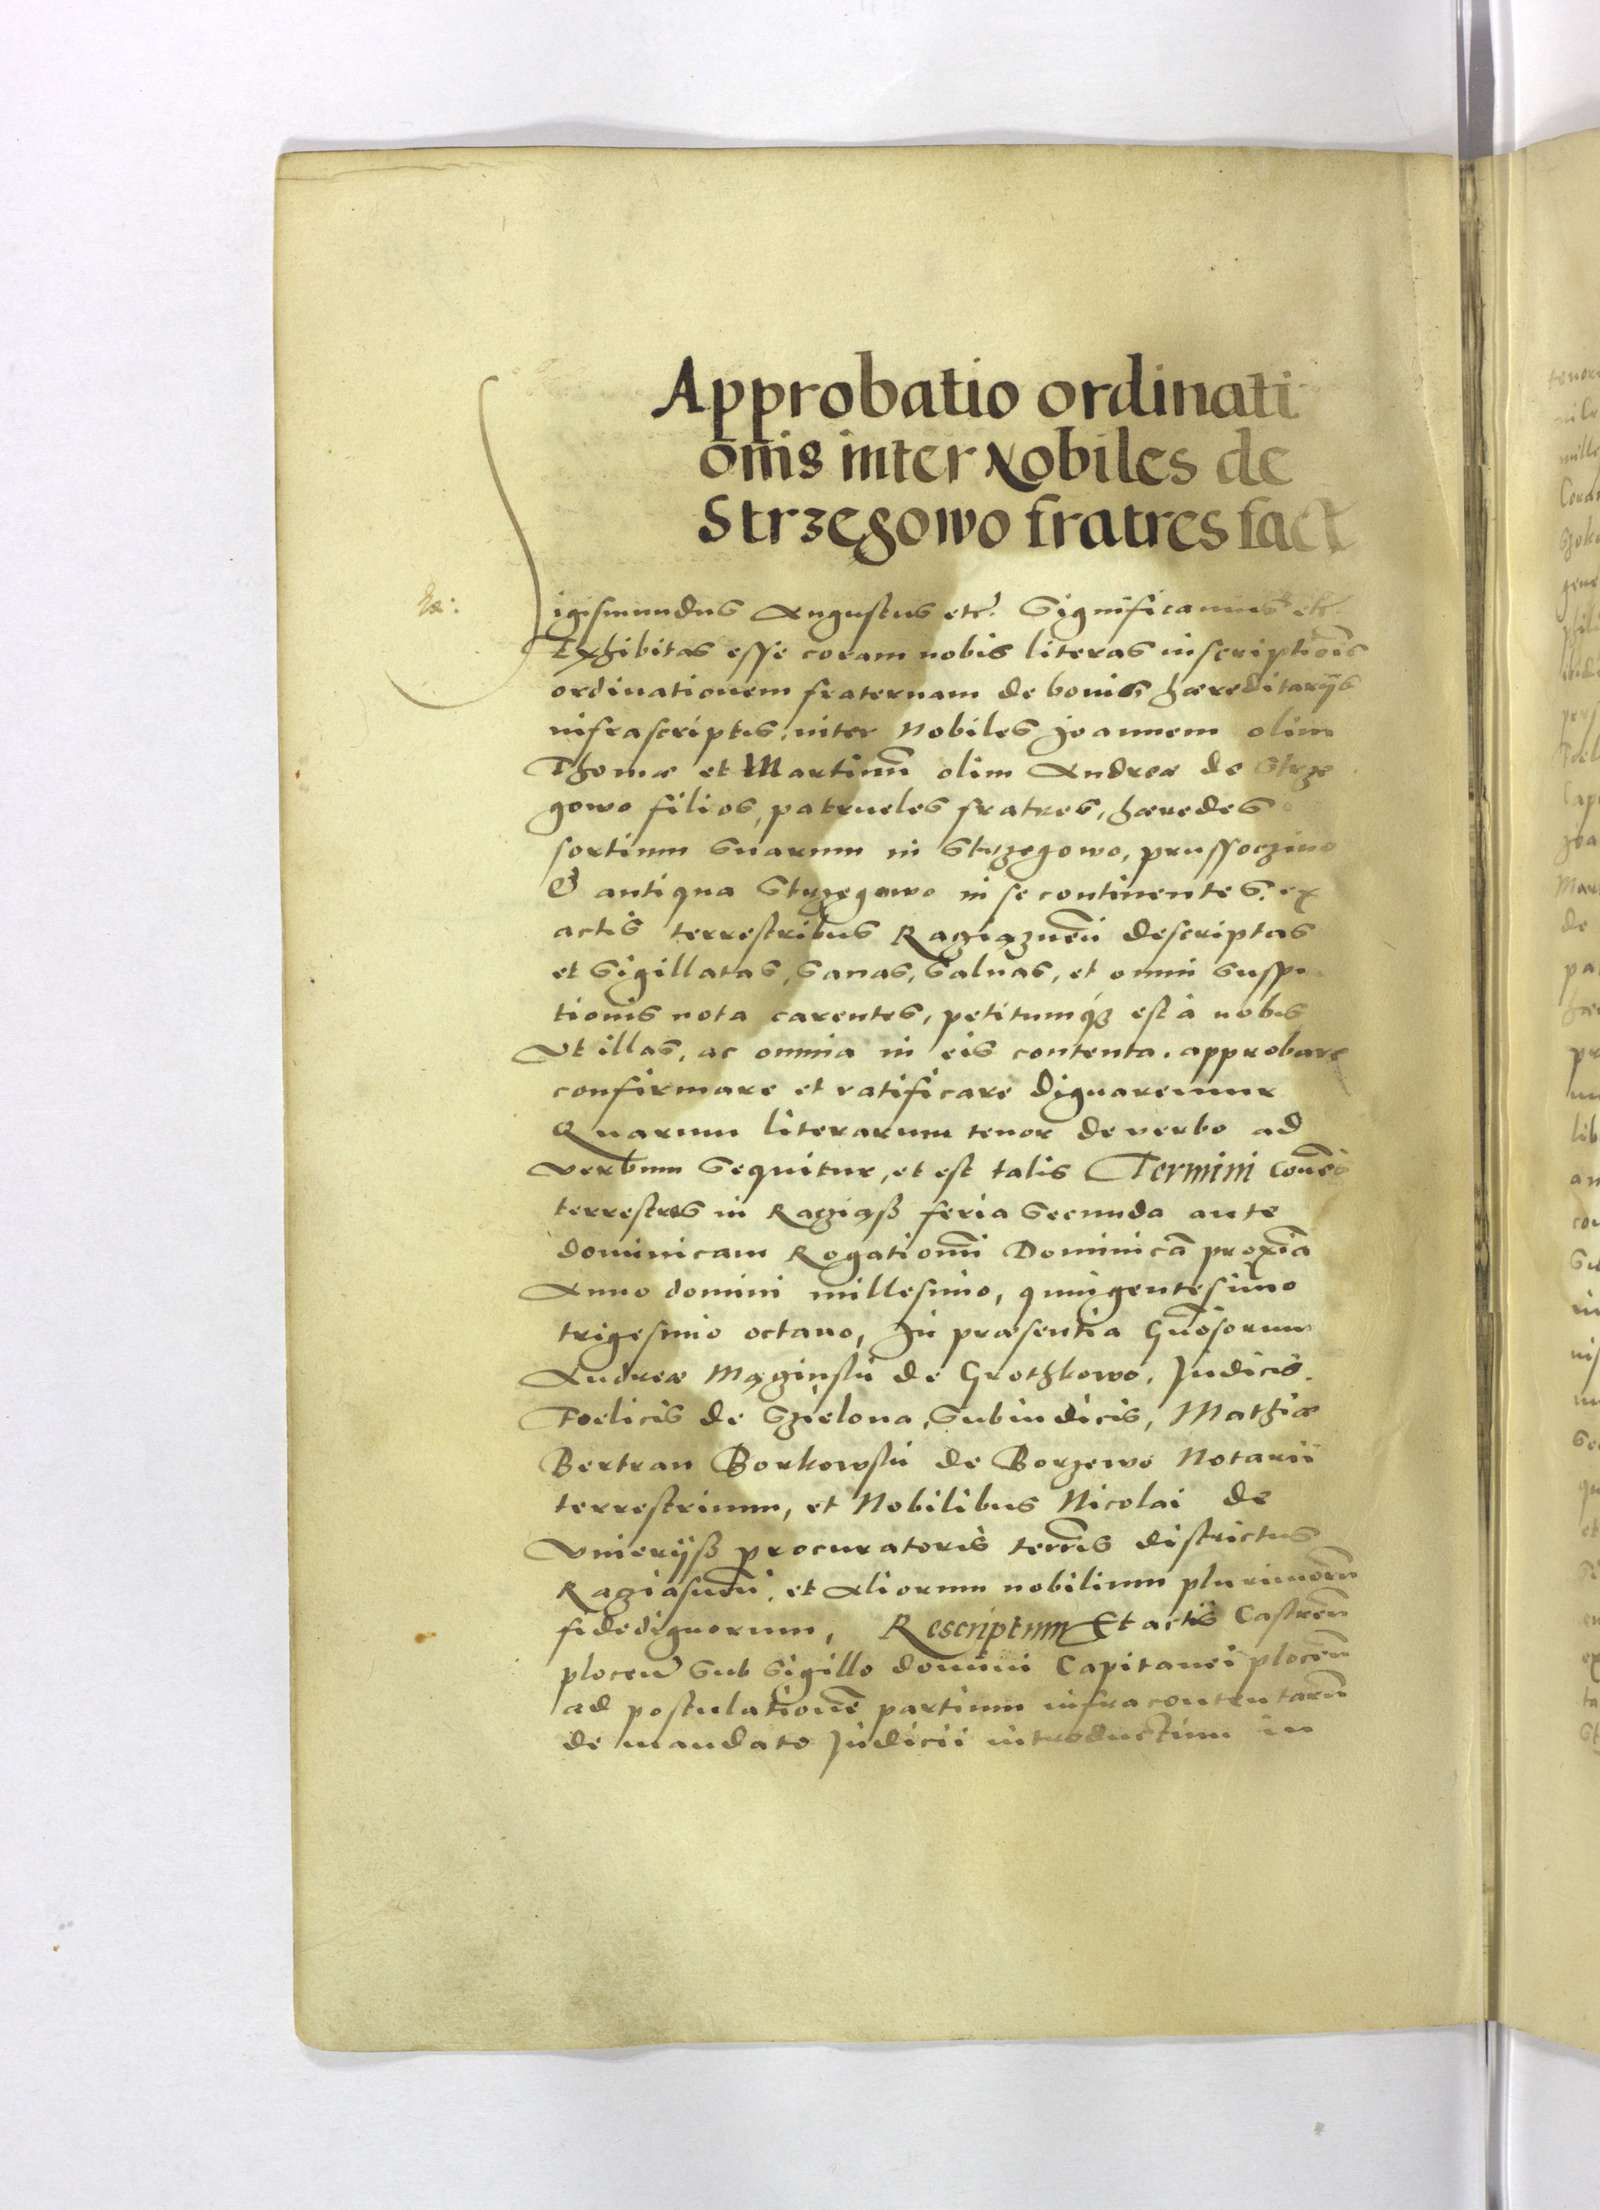 Approbatio ordinati
onis inter Nobiles de
Strzegowo fratres fact
Sigismundus Augustus etc. Significamus etc.
Exhibitas esse coram nobis literas inscriptiois
ordinationem fraternam de bonis hæreditarijs
infrascriptis, inter Nobiles Joannem olim
Thomæ et Martinū olim Andreæ de Strze
gowo filios, patrueles fratres, hæredes
sortium suarum in Strzegowo, prussoczino
& antiqua Strzegowo in se continentes. ex
actis terrestribus Raciązneñ descriptas
et sigillatas, sanas, salvas, et omni suspi
tionis nota carentes, petitumq3 est à nobis
Ut illas, ac omnia in eis contenta. approbare
confirmare et ratificare dignaremur
Quarum literarum tenor de verbo ad
verbum sequitur, et est talis Termini
terrestres in Raciąß feria Secunda ante
dominicam Rogationū Dominicā proxīa
Anno domini millesimo, quingentesimo
trigesimo octavo, In præsentia Gñosorum
Andreæ Mąginski de Grothkowo, Judicis.
Foelicis de Szielona, Subiudicis, Mathiæ
Bertran Borkowski de Borzewo Notarii
terrestrium, et Nobilibus Nicolai de
Unieryß procuratoris terrīs districtus
Raciąsneñ, et Aliorum nobilium plurimorū
fidedignorum, Rescriptum Et actis Castreñ
ploceñ sub sigillo domini Capitanei ploceñ
ad postulationē partium infracontentarū
de mandato Judicii introductum in